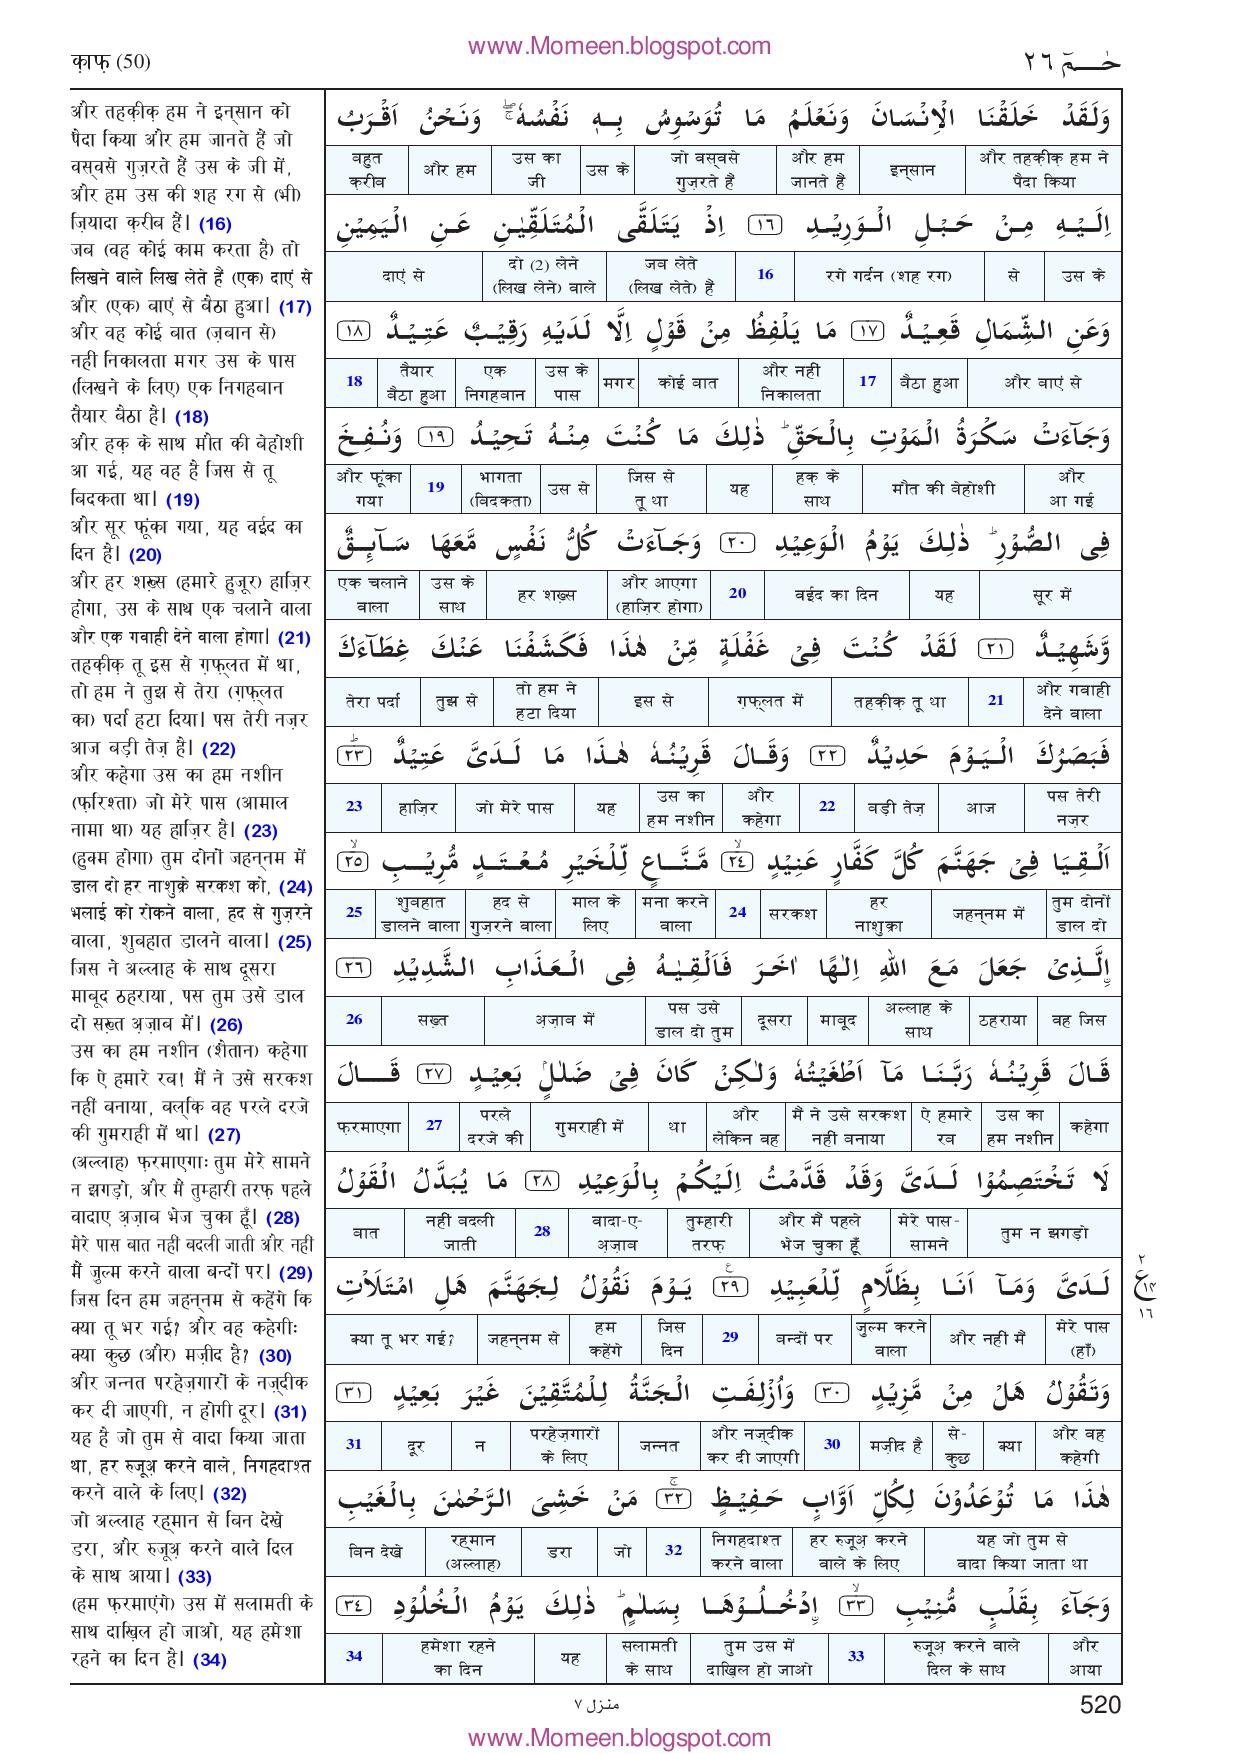 www.Momeen.blogspot.com
क़ाफ़ (50)
حٰـمٓ ٢٦
और तहक़ीक़ हम ने इन्सान को
पैदा किया और हम जानते हैं जो
वस्वसे गुज़रते हैं उस के जी में,
और हम उस की शह रग से (भी)
ज़ियादा क़रीब हैं। (16)
जब (वह कोई काम करता है) तो
लिखने वाले लिख लेते हैं (एक) दाएं से
और (एक) बाएं से बैठा हुआ। (17)
और वह कोई बात (ज़बान से)
नहीं निकालता मगर उस के पास
(लिखने के लिए) एक निगहबान
तैयार बैठा है। (18)
और हक़ के साथ मौत की बेहोशी
आ गई, यह वह है जिस से तू
बिदकता था। (19)
और सूर फूंका गया, यह वईद का
दिन है। (20)
और हर शख़्स (हमारे हुजूर) हाज़िर
होगा, उस के साथ एक चलाने वाला
और एक गवाही देने वाला होगा। (21)
तहक़ीक़ तू इस से ग़फ़्लत में था,
तो हम ने तुझ से तेरा (ग़फ़्लत
का) पर्दा हटा दिया। पस तेरी नज़र
आज बड़ी तेज़ है। (22)
और कहेगा उस का हम नशीन
(फ़रिश्ता) जो मेरे पास (आमाल
नामा था) यह हाज़िर है। (23)
(हुक्म होगा) तुम दोनों जहन्नम में
डाल दो हर नाशुक्रे सरकश को, (24)
भलाई को रोकने वाला, हद से गुज़रने
वाला, शुबहात डालने वाला। (25)
जिस ने अल्लाह के साथ दूसरा
माबूद ठहराया, पस तुम उसे डाल
दो सख़्त अ़ज़ाब में। (26)
उस का हम नशीन (शैतान) कहेगा
कि ऐ हमारे रब! मैं ने उसे सरकश
नहीं बनाया, बल्कि वह परले दरजे
की गुमराही में था। (27)
(अल्लाह) फ़रमाएगाः तुम मेरे सामने
न झगड़ो, और मैं तुम्हारी तरफ़ पहले
वादाए अ़ज़ाब भेज चुका हूँ। (28)
मेरे पास बात नहीं बदली जाती और नहीं
मैं ज़ुल्म करने वाला बन्दों पर। (29)
जिस दिन हम जहन्नम से कहेंगे कि
क्या तू भर गई? और वह कहेगीः
क्या कुछ (और) मज़ीद है? (30)
और जन्नत परहेज़गारों के नज़्दीक
कर दी जाएगी, न होगी दूर। (31)
यह है जो तुम से वादा किया जाता
था, हर रुजूअ़ करने वाले, निगहदाश्त
करने वाले के लिए। (32)
जो अल्लाह रहमान से बिन देखे
डरा, और रुजूअ़ करने वाले दिल
के साथ आया। (33)
(हम फ़रमाएंगे) उस में सलामती के
साथ दाख़िल हो जाओ, यह हमेशा
रहने का दिन है। (34)
وَلَقَدْ خَلَقْنَا الْاِنْسَانَ وَنَعْلَمُ مَا تُوَسْوِسُ بِهٖ نَفْسُهٗ ۚ وَنَحْنُ اَقْرَبُ
और तहक़ीक़ हम ने पैदा किया | इन्सान | और हम जानते हैं | जो वस्वसे गुज़रते हैं | उस के | उस का जी | और हम | बहुत क़रीब
اِلَيْهِ مِنْ حَبْلِ الْوَرِيْدِ ١٦ اِذْ يَتَلَقَّى الْمُتَلَقِّيٰنِ عَنِ الْيَمِيْنِ
उस के | से | रगे गर्दन (शह रग) | 16 | जब लेते (लिख लेते) हैं | दो (2) लेने (लिख लेने) वाले | दाएं से
وَعَنِ الشِّمَالِ قَعِيْدٌ ١٧ مَا يَلْفِظُ مِنْ قَوْلٍ اِلَّا لَدَيْهِ رَقِيْبٌ عَتِيْدٌ ١٨
और बाएं से | बैठा हुआ | 17 | और नहीं निकालता | कोई बात | मगर | उस के पास | एक निगहबान | तैयार बैठा हुआ | 18
وَجَآءَتْ سَكْرَةُ الْمَوْتِ بِالْحَقِّ ؕ ذٰلِكَ مَا كُنْتَ مِنْهُ تَحِيْدُ ١٩ وَنُفِخَ
और आ गई | मौत की बेहोशी | हक़ के साथ | यह | जिस से तू था | उस से | भागता (बिदकता) | 19 | और फूंका गया
فِى الصُّوْرِ ؕ ذٰلِكَ يَوْمُ الْوَعِيْدِ ٢٠ وَجَآءَتْ كُلُّ نَفْسٍ مَّعَهَا سَآئِقٌ
सूर में | यह | वईद का दिन | 20 | और आएगा (हाज़िर होगा) | हर शख़्स | उस के साथ | एक चलाने वाला
وَّشَهِيْدٌ ٢١ لَقَدْ كُنْتَ فِىْ غَفْلَةٍ مِّنْ هٰذَا فَكَشَفْنَا عَنْكَ غِطَآءَكَ
और गवाही देने वाला | 21 | तहक़ीक़ तू था | ग़फ़्लत में | इस से | तो हम ने हटा दिया | तुझ से | तेरा पर्दा
فَبَصَرُكَ الْيَوْمَ حَدِيْدٌ ٢٢ وَقَالَ قَرِيْنُهٗ هٰذَا مَا لَدَىَّ عَتِيْدٌ ؕ ٢٣
पस तेरी नज़र | आज | बड़ी तेज़ | 22 | और कहेगा | उस का हम नशीन | यह | जो मेरे पास | हाज़िर | 23
اَلْقِيَا فِىْ جَهَنَّمَ كُلَّ كَفَّارٍ عَنِيْدٍ ۙ ٢٤ مَّنَّاعٍ لِّلْخَيْرِ مُعْتَدٍ مُّرِيْبٍ ۙ ٢٥
तुम दोनों डाल दो | जहन्नम में | हर नाशुक्रा | सरकश | 24 | मना करने वाला | माल के लिए | हद से गुज़रने वाला | शुबहात डालने वाला | 25
اۨلَّذِىْ جَعَلَ مَعَ اللّٰهِ اِلٰهًا اٰخَرَ فَاَلْقِيٰهُ فِى الْعَذَابِ الشَّدِيْدِ ٢٦
वह जिस | ठहराया | अल्लाह के साथ | माबूद | दूसरा | पस उसे डाल दो तुम | अ़ज़ाब में | सख़्त | 26
قَالَ قَرِيْنُهٗ رَبَّنَا مَآ اَطْغَيْتُهٗ وَلٰكِنْ كَانَ فِىْ ضَلٰلٍۢ بَعِيْدٍ ٢٧ قَالَ
कहेगा | उस का हम नशीन | ऐ हमारे रब | मैं ने उसे सरकश नहीं बनाया | और लेकिन वह | था | गुमराही में | परले दरजे की | 27 | फ़रमाएगा
لَا تَخْتَصِمُوْا لَدَىَّ وَقَدْ قَدَّمْتُ اِلَيْكُمْ بِالْوَعِيْدِ ٢٨ مَا يُبَدَّلُ الْقَوْلُ
तुम न झगड़ो | मेरे पास-सामने | और मैं पहले भेज चुका हूँ | तुम्हारी तरफ़ | वादा-ए-अ़ज़ाब | 28 | नहीं बदली जाती | बात
لَدَىَّ وَمَآ اَنَا بِظَلَّامٍ لِّلْعَبِيْدِ ۧ ٢٩ يَوْمَ نَقُوْلُ لِجَهَنَّمَ هَلِ امْتَلَاْتِ
मेरे पास (हाँ) | और नहीं मैं | ज़ुल्म करने वाला | बन्दों पर | 29 | जिस दिन | हम कहेंगे | जहन्नम से | क्या तू भर गई?
وَتَقُوْلُ هَلْ مِنْ مَّزِيْدٍ ٣٠ وَاُزْلِفَتِ الْجَنَّةُ لِلْمُتَّقِيْنَ غَيْرَ بَعِيْدٍ ٣١
और वह कहेगी | क्या | से-कुछ | मज़ीद है | 30 | और नज़्दीक कर दी जाएगी | जन्नत | परहेज़गारों के लिए | न | दूर | 31
هٰذَا مَا تُوْعَدُوْنَ لِكُلِّ اَوَّابٍ حَفِيْظٍ ۚ ٣٢ مَنْ خَشِىَ الرَّحْمٰنَ بِالْغَيْبِ
यह जो तुम से वादा किया जाता था | हर रुजूअ़ करने वाले के लिए | निगहदाश्त करने वाला | 32 | जो | डरा | रहमान (अल्लाह) | बिन देखे
وَجَآءَ بِقَلْبٍ مُّنِيْبِ ۙ ٣٣ اۨدْخُلُوْهَا بِسَلٰمٍ ؕ ذٰلِكَ يَوْمُ الْخُلُوْدِ ٣٤
और आया | रुजूअ़ करने वाले दिल के साथ | 33 | तुम उस में दाख़िल हो जाओ | सलामती के साथ | यह | हमेशा रहने का दिन | 34
٢
ع ١٤
١٦
منزل ٧
520
www.Momeen.blogspot.com